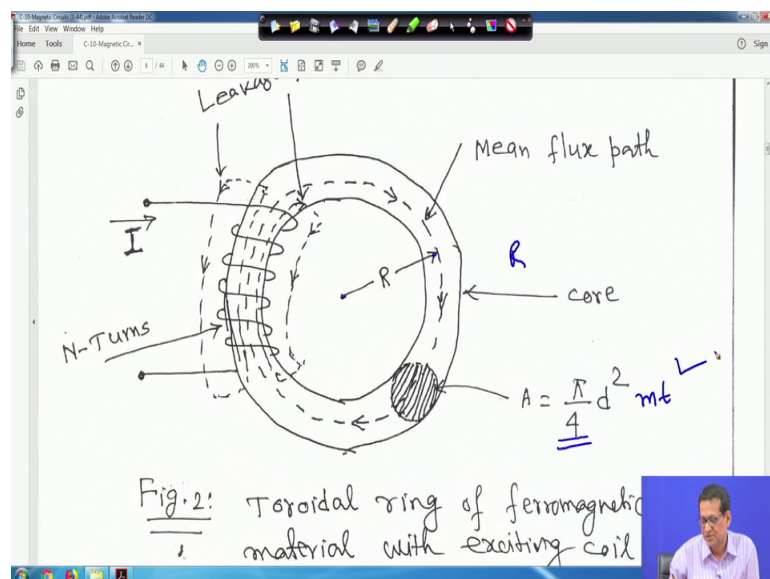 C-10-Magnetic Circuits (1-44).pdf - Adobe Acrobat Reader DC
File Edit View Window Help
Home Tools C-10-Magnetic Cir... × Sign
6 / 44 200%
Mean flux path
I
R
R
core
N-Turns
A = π/4 d² mt
Fig. 2: Toroidal ring of ferromagnetic
material with exciting coil